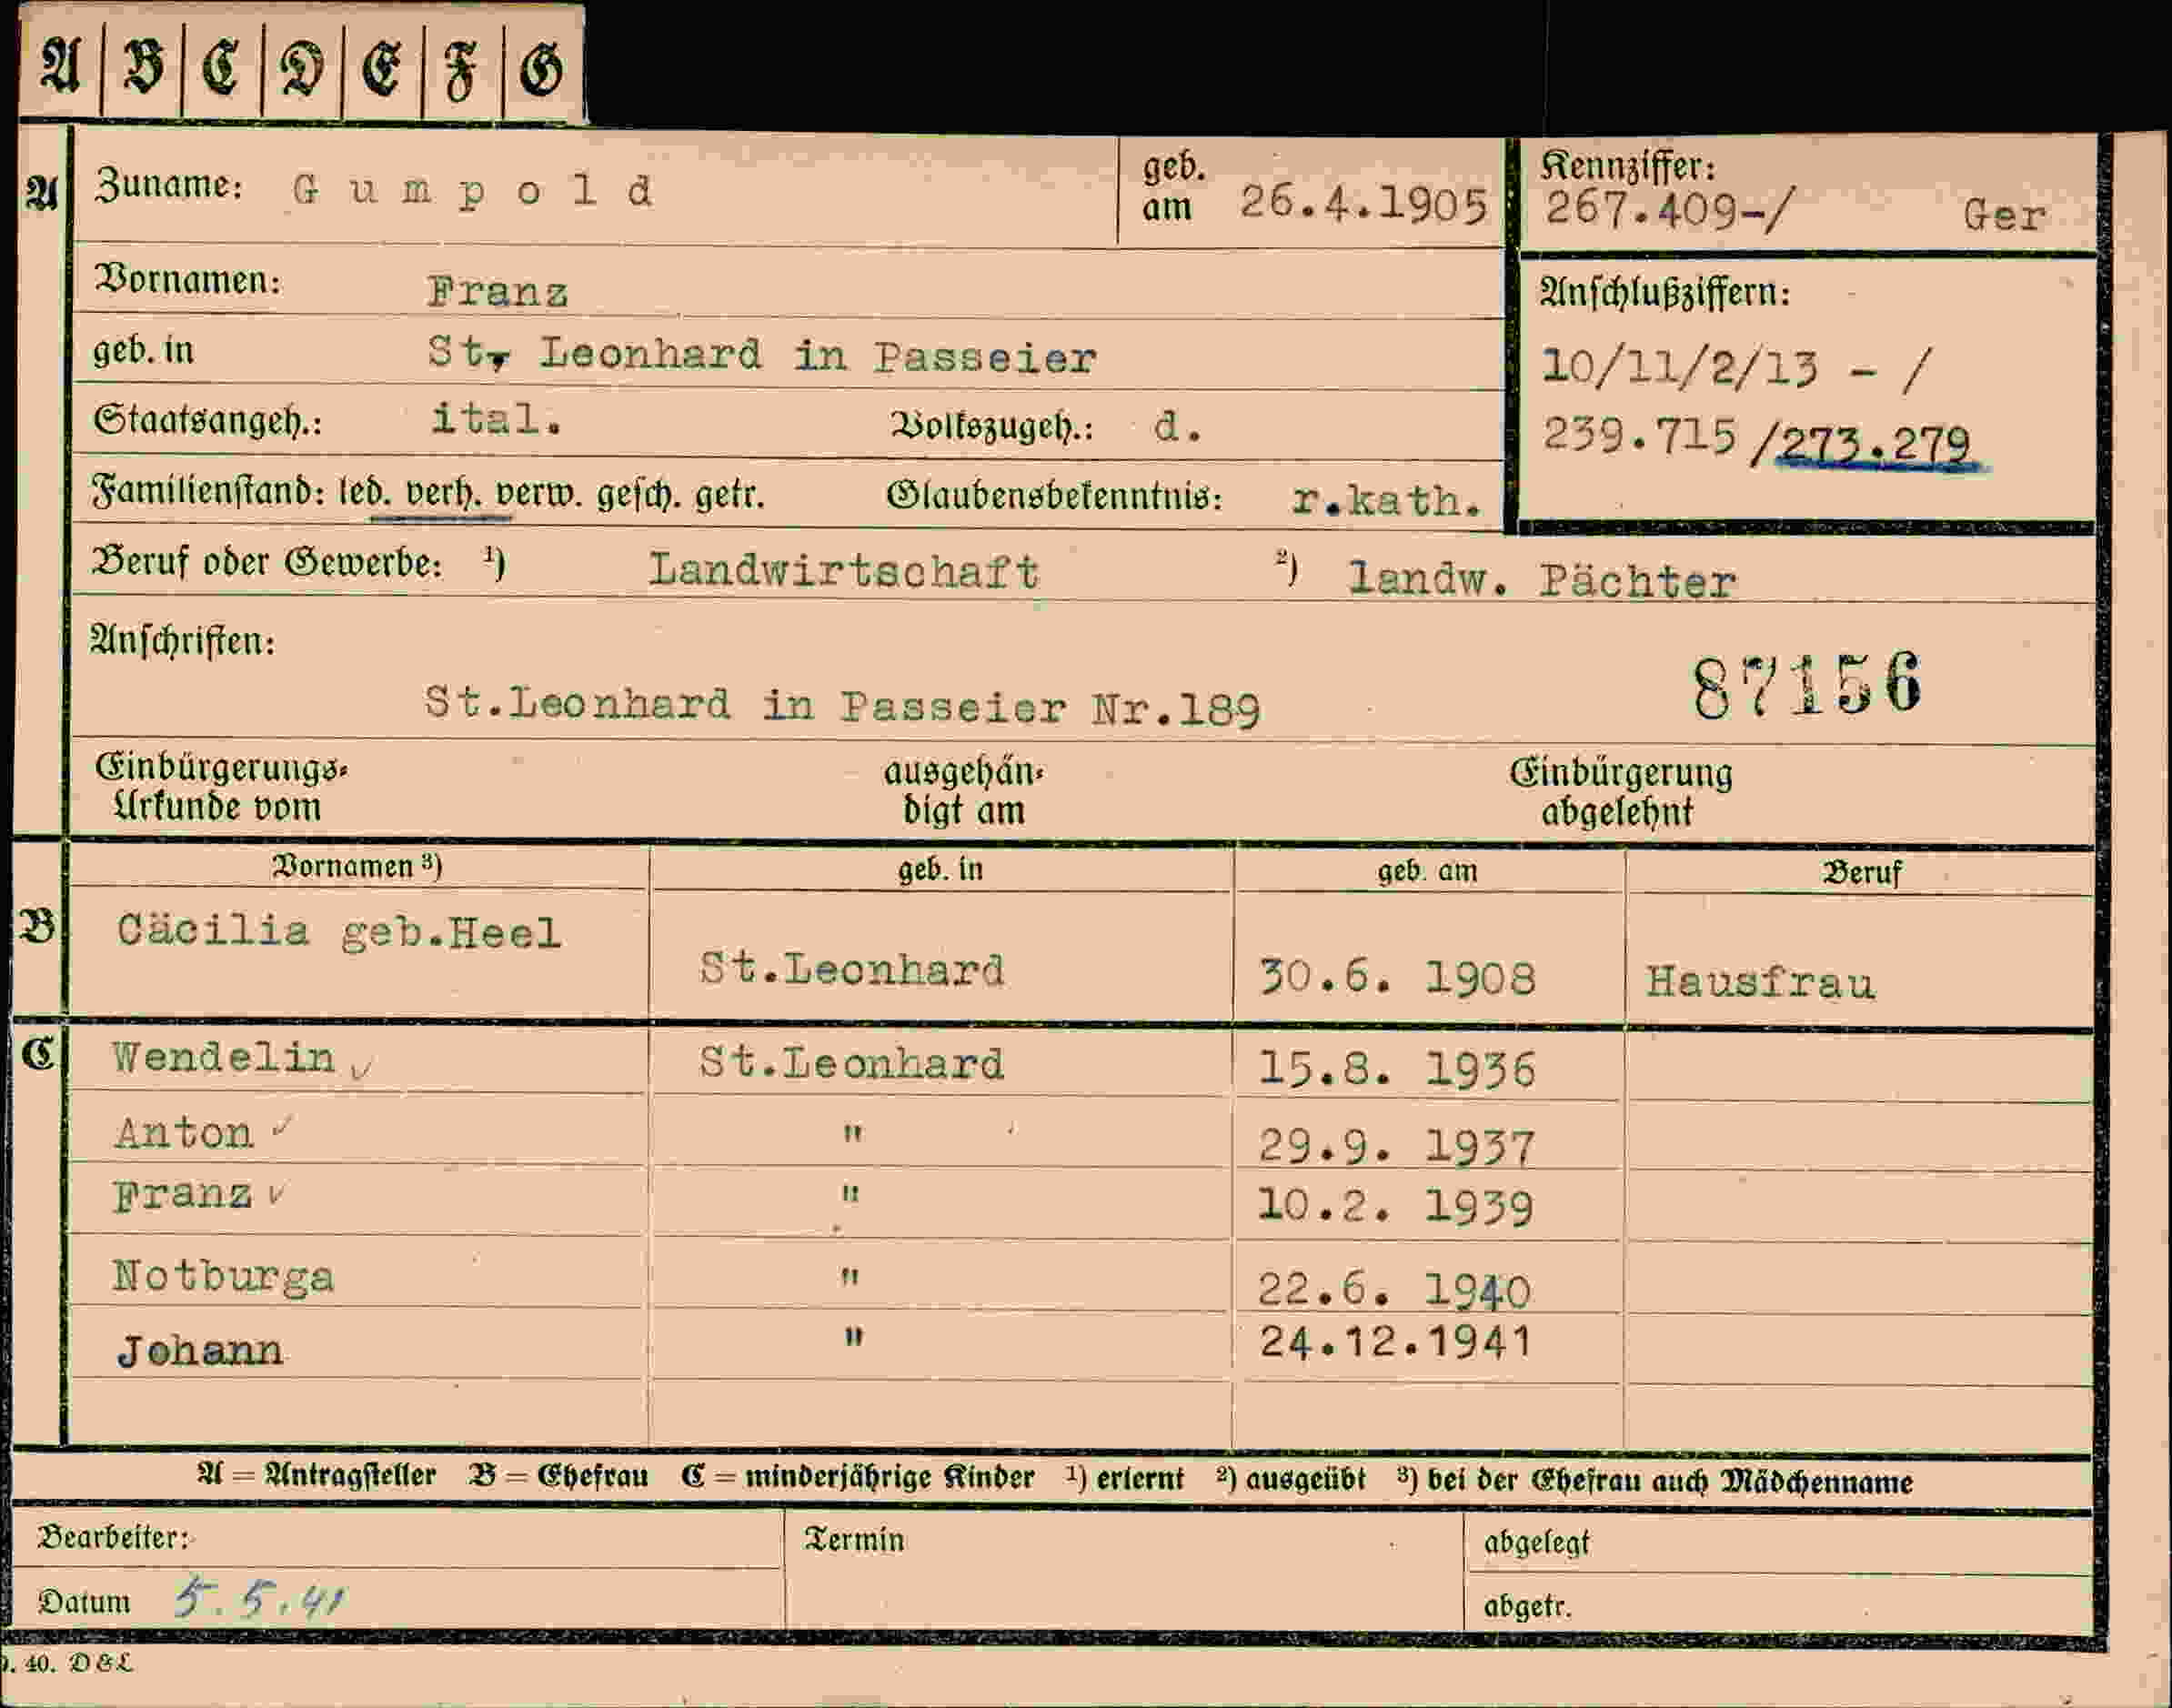 A B C D E F G
A Zuname: Gumpold geb. am 26.4.1905 Kennziffer: 267.409-/ Ger
Vornamen: Franz Anschlußziffern:
geb. in St. Leonhard in Passeier 10/11/2/13 - /
Staatsangeh.: ital. Volkszugeh.: d. 239.715 /273.279
Familienstand: led. verh. verw. gesch. getr. Glaubensbekenntnis: r.kath.
Beruf oder Gewerbe: ¹) Landwirtschaft ²) landw. Pächter
Anschriften:
St.Leonhard in Passeier Nr.189 87156
Einbürgerungs- ausgehän- Einbürgerung
Urkunde vom digt am abgelehnt
Vornamen ³) geb. in geb. am Beruf
B Cäcilia geb.Heel St.Leonhard 30.6. 1908 Hausfrau
C Wendelin ✓ St.Leonhard 15.8. 1936
Anton ✓ " 29.9. 1937
Franz ✓ " 10.2. 1939
Notburga " 22.6. 1940
Johann " 24.12.1941
A = Antragsteller B = Ehefrau C = minderjährige Kinder ¹) erlernt ²) ausgeübt ³) bei der Ehefrau auch Mädchenname
Bearbeiter: Termin abgelegt
Datum 5.5.41 abgetr.
. 40. D & L